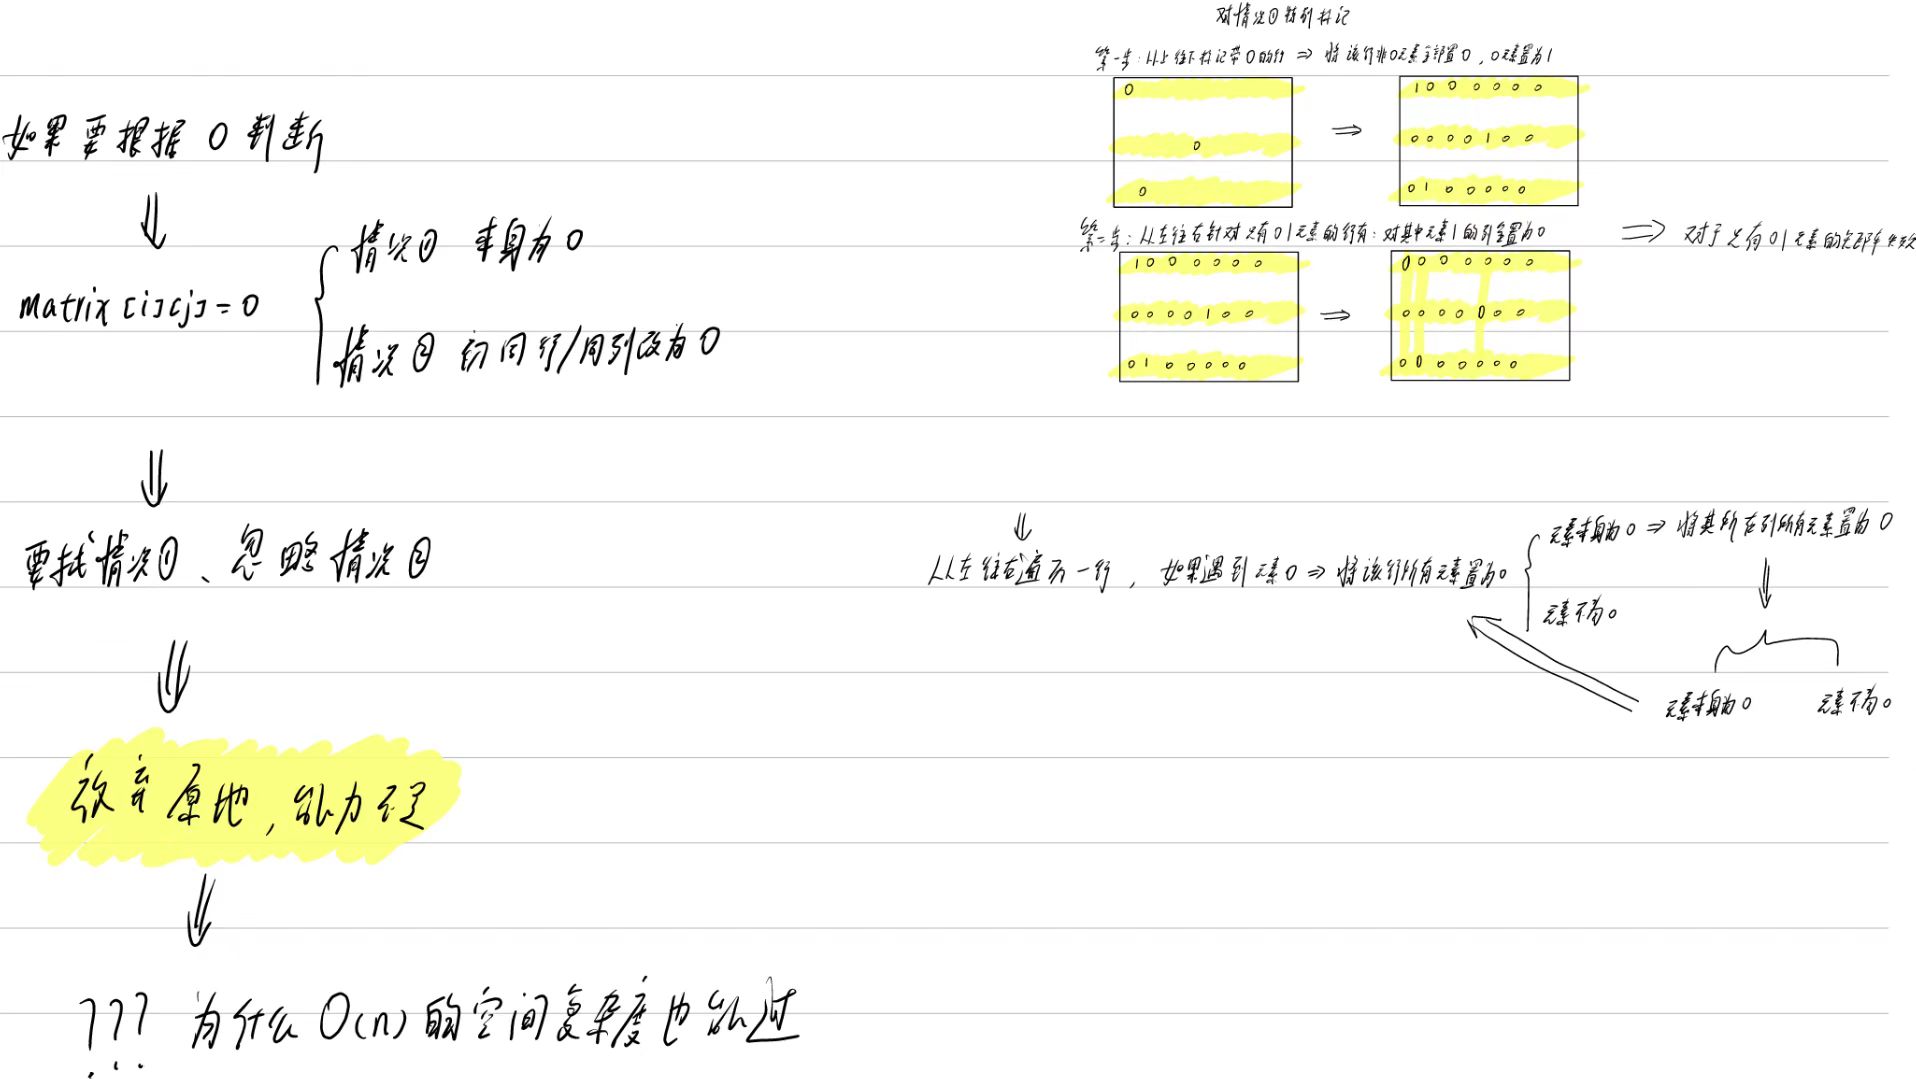 如果要根据 0 判断
matrix[i][j]=0
情况① 本身为 0
情况② 因同行/同列改为 0
要找情况①、忽略情况②
放弃原地,能力不足
??? 为什么 O(n) 的空间复杂度也能过
对情况①特别标记
第一步:从上往下标记带0的行 ⇒ 将该行非0元素全部置0,0元素置为1
0
0
0
⇒
1 0 0 0 0 0 0
0 0 0 0 1 0 0
0 1 0 0 0 0 0
第二步:从左往右针对只有01元素的行有:对其中元素1的列全置为0
⇒ 对于只有01元素的
1 0 0 0 0 0 0
0 0 0 0 1 0 0
0 1 0 0 0 0 0
⇒
0 0 0 0 0 0 0
0 0 0 0 0 0 0
0 0 0 0 0 0 0
从左往右遍历一行,如果遇到元素0 ⇒ 将该行所有元素置为0
元素本身为0 ⇒ 将其所在列所有元素置为0
元素不为0
元素本身为0
元素不为0